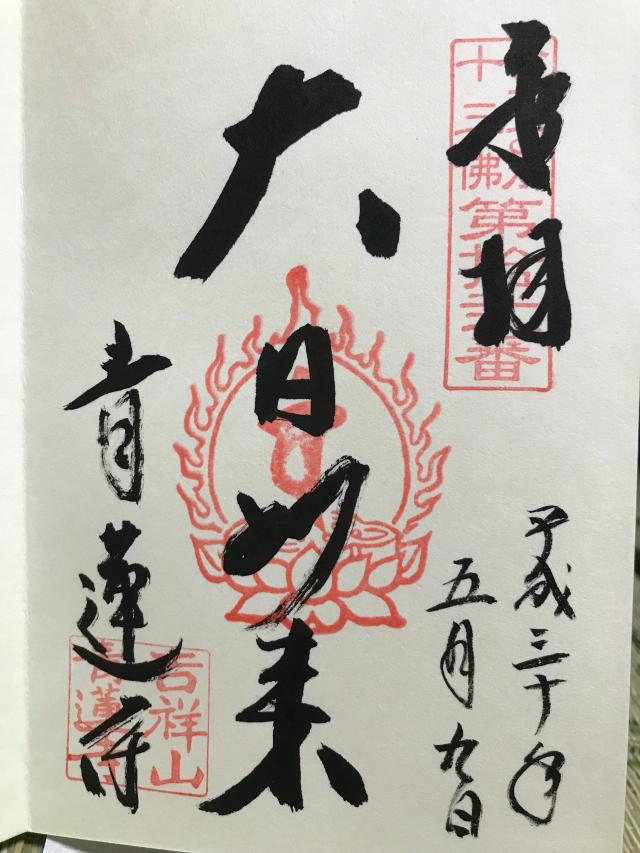 奉拝
十三佛
第拾番
平成三十年
五月九日
大日如来
青蓮寺
吉祥山
青蓮寺